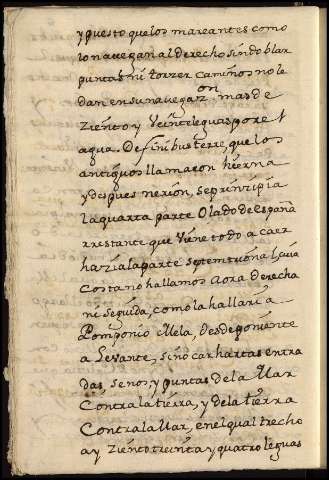 y puesto que los mareantes como
lo navegan al derecho sin doblar
puntas ni torzer caminos no le
dan en su navegazon mas de
Ziento y Veinte leguas por el
agua. De finibus terre, que los
antiguos llamaron hierna
y despues nerion, se prinzipia
la quarta parte O lado de España
rrestante que Viene todo a caer
hazia la parte septemtrional, cuia
Costa no hallamos aora derecha
ni seguida, como la hallaria
Pomponio Mela, desde poniente
a Levante, sino con hartas entra
das, senos, y puntas de la Mar
Contra la tierra, y de la tierra
Contra la Mar, en el qual trecho
ay Ziento treinta y quatro leguas